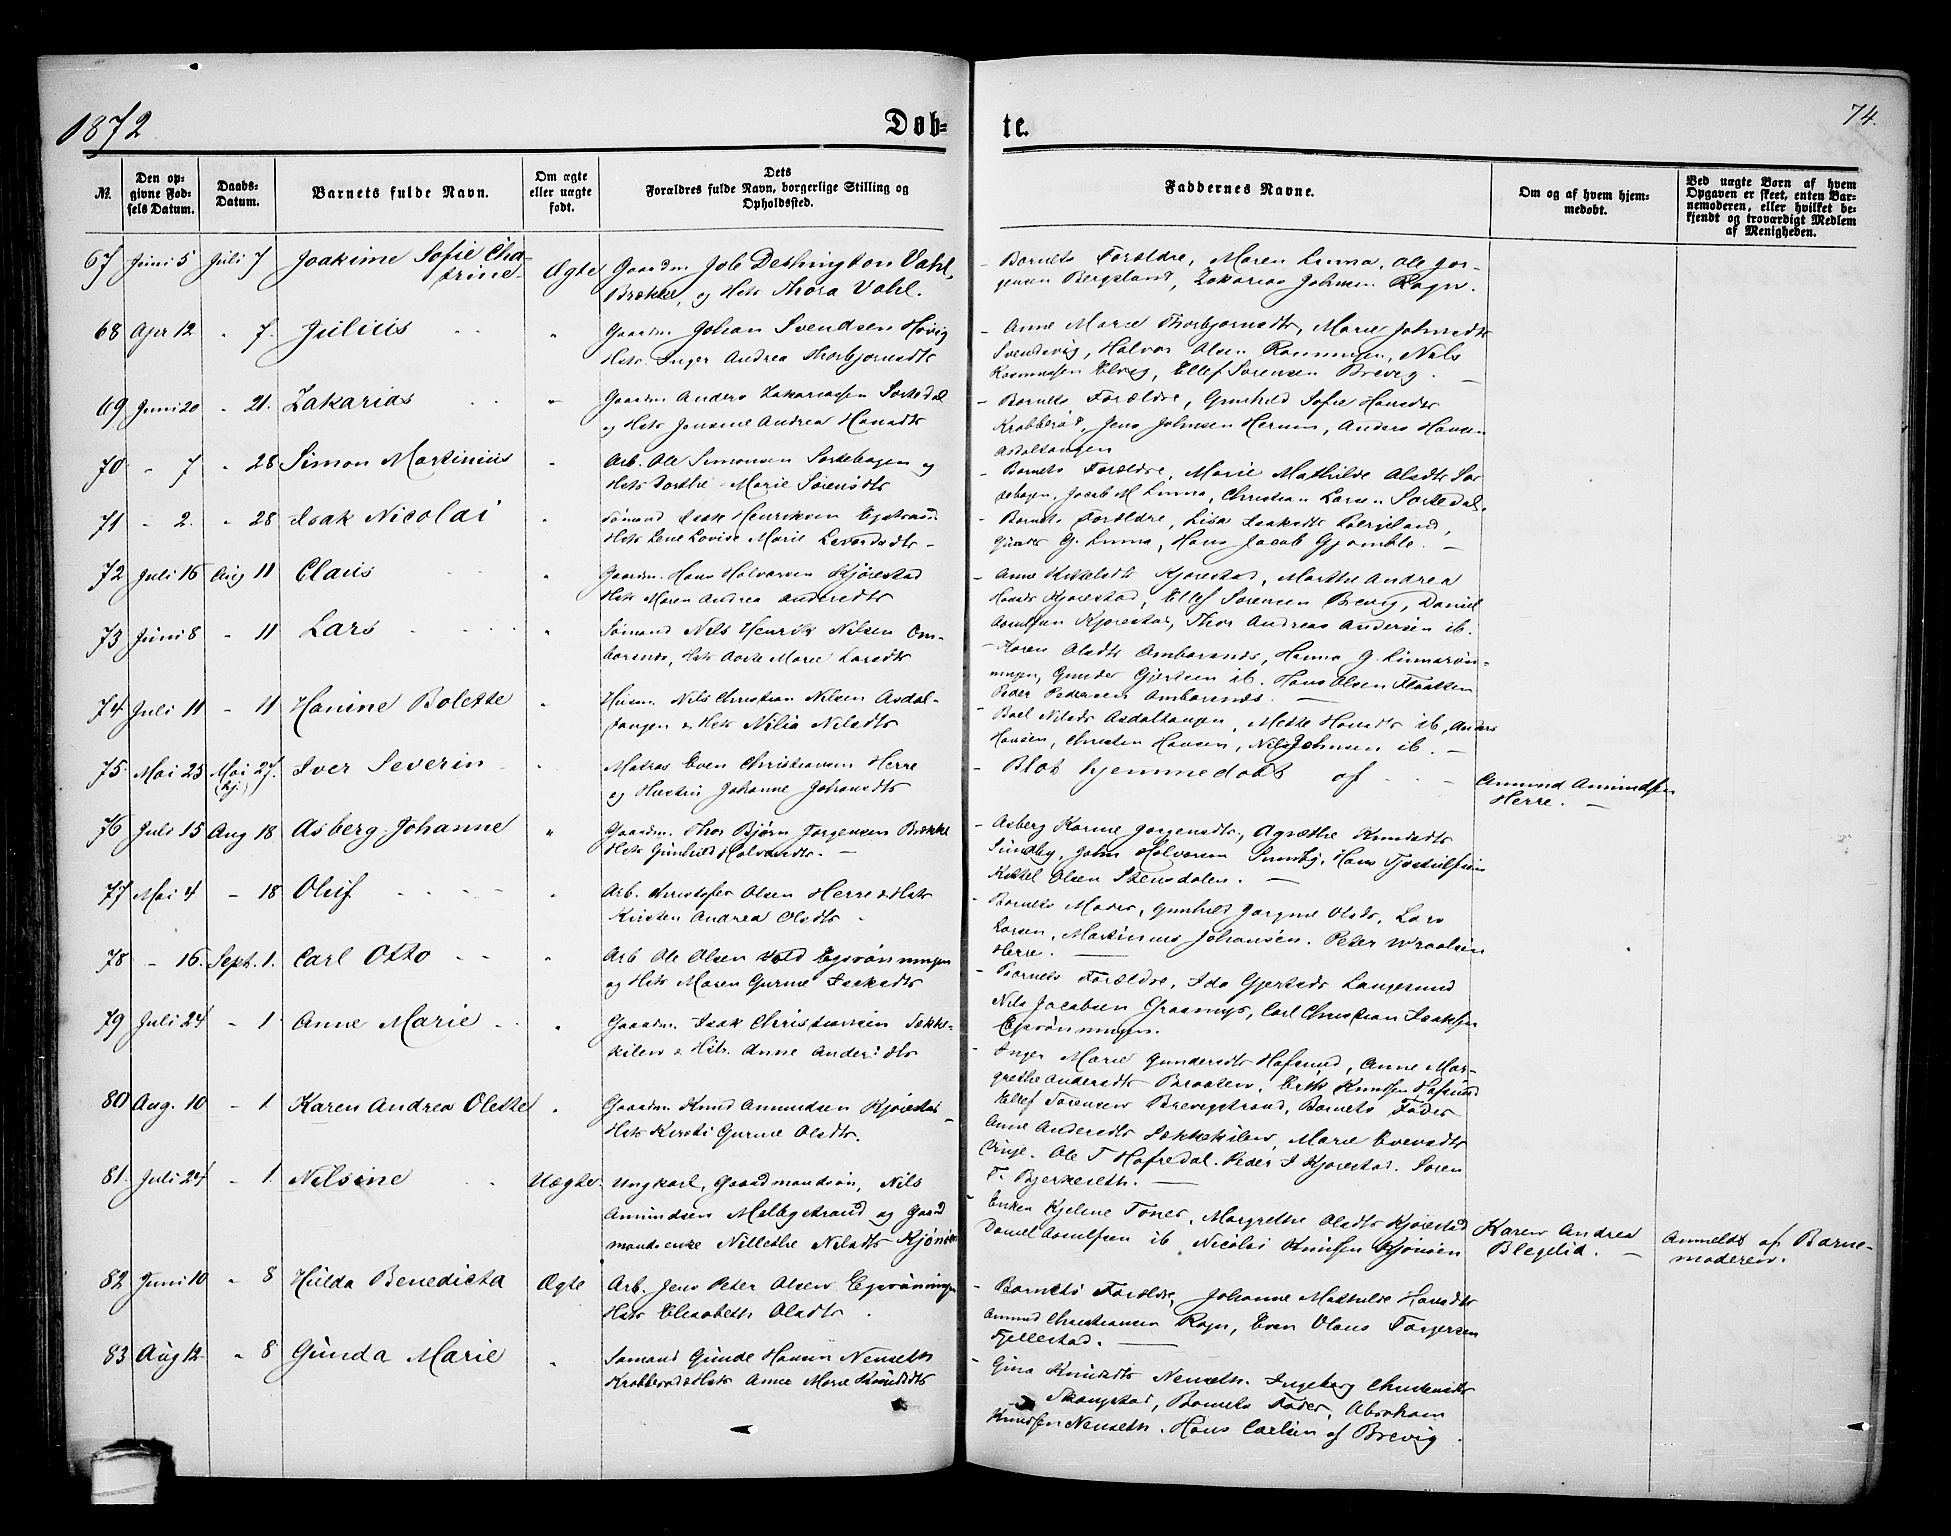 1872
Døb-
te.
74.
№.
Den op-
givne Fød-
sels Datum.
Daabs-
Datum.
Barnets fulde Navn.
Om ægte
eller uægte
født.
Dets
Forældres fulde Navn, borgerlige Stilling og
Opholdssted.
Faddernes Navne.
Om og af hvem hjem-
medøbt.
Ved uægte Børn af hvem
Opgaven er skeet, enten Bar-
nemoderen, eller hvilket be-
kjendt og troværdigt Medlem
af Menigheden.
67 Juni 5 Juli 7 Joakime Sofie Cha-
trine Ægte Gaardm. Job Dethington Vahl,
Brække, og Hstr. Thora Vahl.
- Barnets Forældre, Maren Linna, Ole Jør-
gensen Bergsland, Zakarias Johnsen Rogn.
68 Apr 12 " 7. Julius " Gaardm. Johan Svendsen Høvig
Hstr. Inger Andrea Thorbjørnsdtr
- Anne Marie Thorbjørnsdtr, Marie Johnsdtr
Svendsvig, Halvor Olsen Rønningen, Nils
Rasmussen Elvig, Ellef Sørensen Brevig.
69 Juni 20 " 21. Zakarias " Gaardm Anders Zakariassen Sortedal
og Hstr Jensine Andrea Hansdtr
- Barnets Forældre, Gunhild Sofie Hansdtr
Krabberød, Jens Johnsen Herum, Anders Hansen
Asdaltangen
70 " 7 " 28 Simon Martinius " Arb. Ole Simonsen Sortebogen og
Hstr Dorthe Marie Sørensdtr
- Barnets Forældre, Marie Mathilde Olsdtr Sor-
tebogen, Jacob M Linna, Christian Larsen Sortedal.
71 " 2. " 28 Isak Nicolai " Sømand Isak Henriksen
Hstr Lene Lovise Marie
- Barnets Forældre, Lisa Isaksdtr
Gunder G. Linna, Hans Jacob Gjømble.
72 Juli 16 Aug 11 Claus " Gaardm. Hans Halvorsen Kjørestad
Hstr Maren Andrea Andersdtr
- Anne Kittelsdtr Kjørestad, Marthe Andrea
Hansdtr Kjørestad, Ellef Sørensen Brevig, Daniel
Aanulfsen Kjørestad, Thor Andreas Andersen ib.
73 Juni 8 " 11 Lars " Sømand Nils Henrik Nilsen Om-
borsnæs, Hstr Aaste Marie Larsdtr
- Karen Olsdtr Omborsnæs, Hanna G. Linnarøn-
ningen, Gunder Gjertsen ib. Hans Olsen Flaatten
Peder Pedersen Omborsnæs.
74 Juli 11 " 11 Hanine Bolette " Husm. Nils Christian Nilsen Asdal-
tangen & Hstr Nilia Nilsdtr
- Boel Nilsdtr Asdaltangen, Mette Hansdtr ib, Anders
Hansen, Christen Hansen, Nils Johnsen ib.
75 Mai 25 Mai 27. (hj.) Iver Severin " Matros Even Christiansen Herre
og Hustru Johanne Johansdtr
- Blot hjemmedøbt af
Amund Amundsen
Herre.
76 Juli 15 Aug 18 Asberg Johanne " Gaardm. Thor Bjørn Jørgensen Brække
Hstr Gunhild Halvorsdtr.
- Asberg Karine Jørgensdtr, Agnethe Knudsdtr
Sundby, John Halvorsen Sundby, Hans Tjostolfsen
Kittel Olsen Stensdalen.
77 Mai 4 " 18 Oluf " Arb. Christofer Olsen Herre & Hstr
Kirsten Andrea Olsdtr
- Barnets Moder, Gunhild Jørgine Olsdtr, Lars
Larsen, Martinius Johansen. Peter Wraalsen
Herre.
78 " 16. Sept. 1. Carl Otto " Arb Ole Olsen Egsrønningen
og Hstr Maren Gurine Isaksdtr
- Barnets Forældre, Ida Gjertsdtr Langesund
Nils Jacobsen Graanup, Carl Christian Isaksen
Egsrønningen.
79 Juli 24 " 1 Anne Marie " Gaardm. Isak Christiansen Søkke-
kilen & Hstr. Anne Andersdtr
- Inger Marie Gundersdtr Hafsund, Anne Mar-
grethe Andersdtr Braaten, Erik Knudsen Hafsund
Ellef Sørensen Brevigstrand, Barnets Fader
80 Aug. 10 " 1 Karen Andrea Olette " Gaardm Knud Amundsen Kjørestad
Hstr Kirsti Gurine Olsdtr.
Anne Andersdtr Søkkekilen, Marie Evensdtr
Ole T Hafredal. Peder I Kjørestad. Søren
F. Bjerkeseth.
81. Juli 24 " 1. Nilsine Uægte. Ungkarl, Gaardmandssøn, Nils
Amundsen Melbystrand og Gaard
mandsenke Nillethe Nilsdtr Kjønøen
- Enken Kjeline Toner, Margrethe Olsdtr Kjørestad
Daniel Aanulfsen ib Nicolai Knudsen Kjønøen
Karen Andrea
Blegelid.
Anmeldt af Barne-
moderen.
82 Juni 10 " 8 Hulda Benedicta Ægte Arb. Jens Peter Olsen Egsrønningen
Hstr Elisabeth Olsdtr
- Barnets Forældre, Johanne Mathilde Hansdtr
Amund Christiansen Rogn, Even Olaus Torgersen
Fjellestad.
83 Aug 12 " 8 Gunda Marie " Sømand Gunde Hansen Nenseth
Krabberød & Hstr Anne Marie Knudsdtr
- Gina Knudsdtr Nenseth. Ingeborg
Skougstad, Barnets Fader, Abraham
Knudsen Nenseth. Hans Carlsen af Brevig.